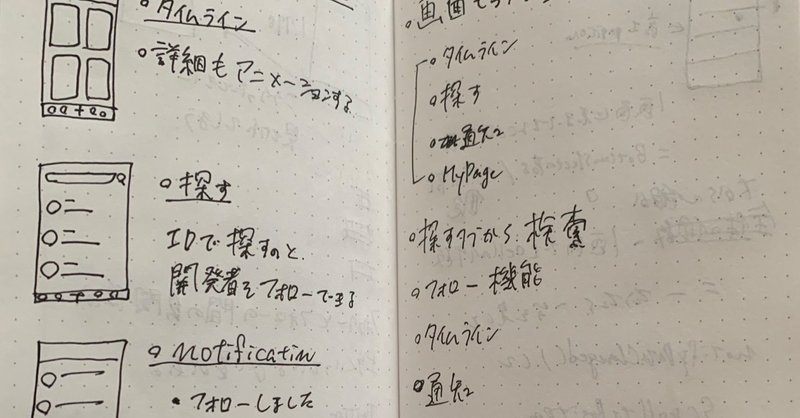 タイムライン
詳細もアニメーションする
探す
IDで探すのと、
開発者をフォローできる
Notificatin
フォローしました
タイムライン
探す
通知
MyPage
探すタブから検索
フォロー機能
タイムライン
通知